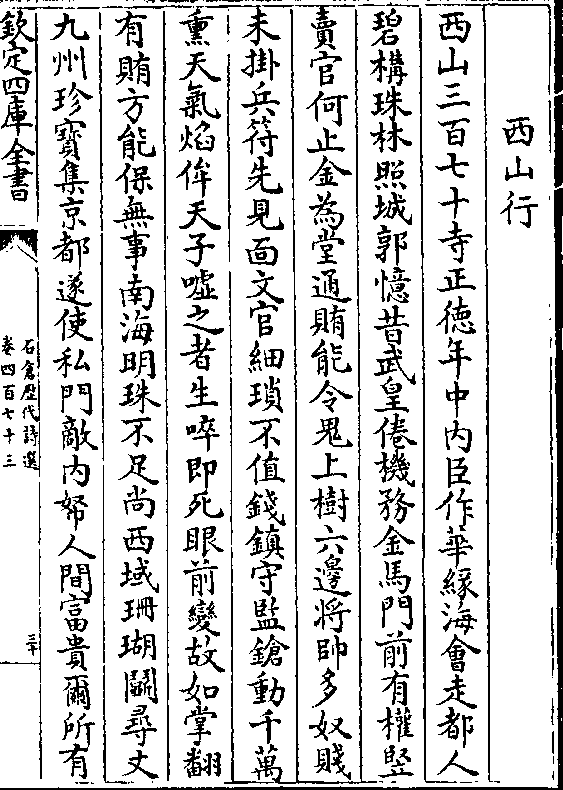 西山行
西山三百七十寺正徳年中内臣作華緣海會走都人
碧構珠林照城郭憶昔武皇倦機務金馬門前有權竪
賣官何止金為堂通賄能令鬼上樹六邊將帥多奴賤
未掛兵符先見面文官細瑣不值錢鎮守監鎗動千萬
熏天氣焰侔天子噓之者生啐即死眼前變故如掌翻
有賄方能保無事南海明珠不足尚西域珊瑚鬭尋丈
九州珍寳集京都遂使私門敵内帑人間富貴爾所有
欽定四庫全書
石倉歴代詩選
卷四百七十三
三十